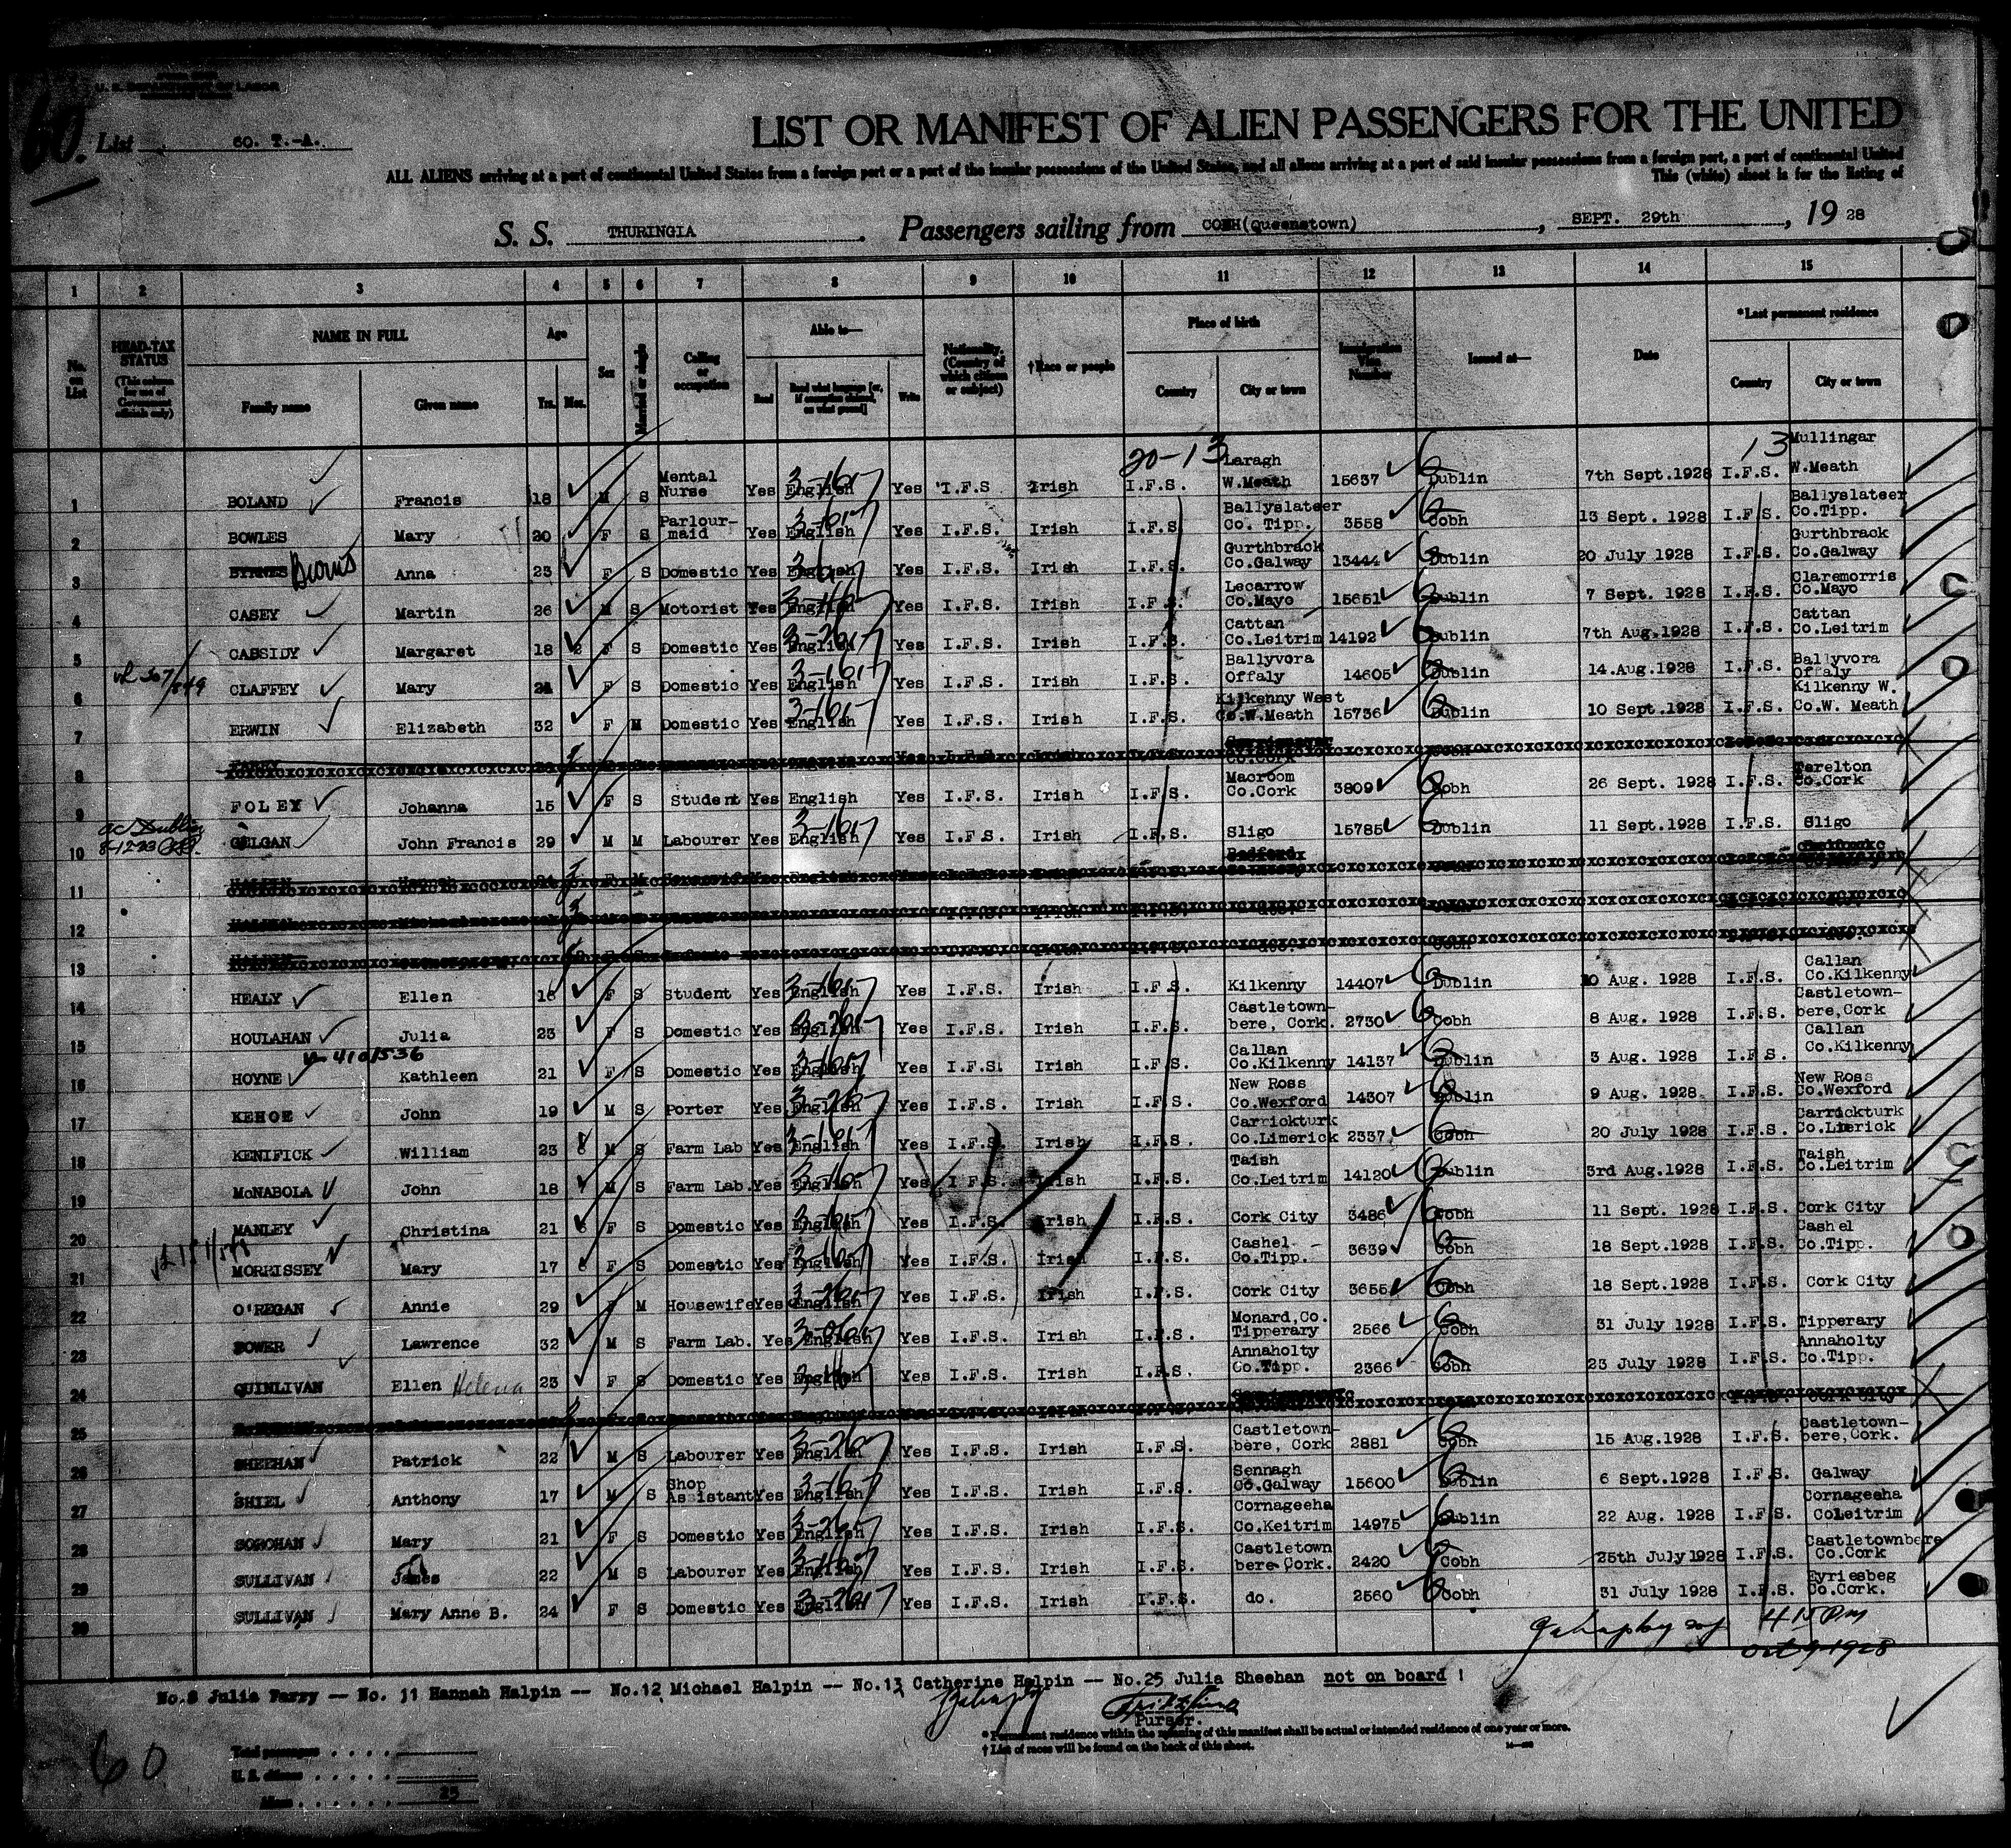 U. S. DEPARTMENT OF LABOR
60. List 60. T.-A.
LIST OR MANIFEST OF ALIEN PASSENGERS FOR THE UNITED
ALL ALIENS arriving at a port of continental United States from a foreign port or a port of the insular possessions of the United States, and all aliens arriving at a port of said insular possessions from a foreign port, a port of continental United
This (white) sheet is for the listing of
S. S. THURINGIA. Passengers sailing from COBH(Queenstown), SEPT. 29th, 19 28
1 2 3 4 5 6 7 8 9 10 11 12 13 14 15
No. on List HEAD-TAX STATUS (This column for use of Government officials only) NAME IN FULL Family name Given name Age Yrs. Mos. Sex Married or single Calling or occupation Able to— Read Read what language [or, if exemption claimed, on what ground] Write Nationality. (Country of which citizen or subject) †Race or people Place of birth Country City or town Immigration Visa Number Issued at— Date *Last permanent residence Country City or town
20-13 13
1 BOLAND Francis 18 M S Mental Nurse Yes English Yes I.F.S Irish I.F.S. Laragh W.Meath 15637 Dublin 7th Sept.1928 I.F.S. Mullingar W.Meath
2 BOWLES Mary 20 F S Parlour-maid Yes English Yes I.F.S. Irish I.F.S Ballyslateer Co. Tipp. 3558 Cobh 13 Sept. 1928 I.F.S. Ballyslateer Co.Tipp.
3 BYRNES Anna 23 F S Domestic Yes English Yes I.F.S. Irish I.F.S. Gurthbrack Co.Galway 13444 Dublin 20 July 1928 I.F.S. Gurthbrack Co.Galway
4 CASEY Martin 26 M S Motorist Yes English Yes I.F.S. Irish I.F.S. Lecarrow Co.Mayo 15651 Dublin 7 Sept. 1928 I.F.S. Claremorris Co.Mayo
5 CASSIDY Margaret 18 F S Domestic Yes English Yes I.F.S. Irish I.F.S. Cattan Co.Leitrim 14192 Dublin 7th Aug.1928 I.F.S. Cattan Co.Leitrim
6 CLAFFEY Mary 21 F S Domestic Yes English Yes I.F.S. Irish I.F.S. Ballyvora Offaly 14605 Dublin 14.Aug.1928 I.F.S. Ballyvora Offaly
7 ERWIN Elizabeth 32 F M Domestic Yes English Yes I.F.S. Irish I.F.S. Kilkenny West Co.W.Meath 15736 Dublin 10 Sept.1928 I.F.S. Kilkenny W. Co.W. Meath
8
9 FOLEY Johanna 15 F S Student Yes English Yes I.F.S. Irish I.F.S. Macroom Co.Cork 3809 Cobh 26 Sept. 1928 I.F.S. Terelton Co.Cork
10 GELGAN John Francis 29 M M Labourer Yes English Yes I.F.S. Irish I.F.S. Sligo 15785 Dublin 11 Sept.1928 I.F.S. Sligo
11
12
13
14 HEALY Ellen 16 F S Student Yes English Yes I.F.S. Irish I.F.S. Kilkenny 14407 Dublin 10 Aug. 1928 I.F.S. Callan Co.Kilkenny
15 HOULAHAN Julia 23 F S Domestic Yes English Yes I.F.S. Irish I.F.S. Castletown-bere, Cork. 2730 Cobh 8 Aug. 1928 I.F.S. Castletown-bere,Cork
16 HOYNE Kathleen 21 F S Domestic Yes English Yes I.F.S. Irish I.F.S. Callan Co.Kilkenny 14137 Dublin 3 Aug. 1928 I.F.S. Callan Co.Kilkenny
17 KEHOE John 19 M S Porter Yes English Yes I.F.S. Irish I.F.S. New Ross Co.Wexford 14307 Dublin 9 Aug. 1928 I.F.S. New Ross Co.Wexford
18 KENIFICK William 23 M S Farm Lab Yes English Yes I.F.S. Irish I.F.S. Carrickturk Co.Limerick 2337 Cobh 20 July 1928 I.F.S. Carrickturk Co.Limerick
19 McNABOLA John 18 M S Farm Lab. Yes English Yes I.F.S. Irish I.F.S. Taish Co.Leitrim 14120 Dublin 3rd Aug.1928 I.F.S. Taish Co.Leitrim
20 MANLEY Christina 21 F S Domestic Yes English Yes I.F.S. Irish I.F.S. Cork City 3486 Cobh 11 Sept. 1928 I.F.S. Cork City
21 MORRISSEY Mary 17 F S Domestic Yes English Yes I.F.S. Irish I.F.S. Cashel Co.Tipp. 3639 Cobh 18 Sept.1928 I.F.S. Cashel Co.Tipp.
22 O'REGAN Annie 29 F M Housewife Yes English Yes I.F.S. Irish I.F.S. Cork City 3655 Cobh 18 Sept.1928 I.F.S. Cork City
23 Lawrence 32 M S Farm Lab. Yes English Yes I.F.S. Irish I.F.S. Monard,Co. Tipperary 2566 Cobh 31 July 1928 I.F.S. Tipperary
24 QUINLIVAN Ellen Helena 23 F S Domestic Yes English Yes I.F.S. Irish I.F.S. Annaholty Co.Tipp. 2366 Cobh 23 July 1928 I.F.S. Annaholty Co.Tipp.
25
26 SHEEHAN Patrick 22 M S Labourer Yes English Yes I.F.S. Irish I.F.S. Castletown-bere, Cork 2881 Cobh 15 Aug.1928 I.F.S. Castletown-bere,Cork.
27 SHIEL Anthony 17 M S Shop Assistant Yes English Yes I.F.S. Irish I.F.S. Sennagh Co.Galway 15600 Dublin 6 Sept.1928 I.F.S. Galway
28 SOROHAN Mary 21 F S Domestic Yes English Yes I.F.S. Irish I.F.S. Cornageeha Co.Keitrim 14975 Dublin 22 Aug. 1928 I.F.S. Cornageeha CoLeitrim
29 SULLIVAN James 22 M S Labourer Yes English Yes I.F.S. Irish I.F.S. Castletown bere Cork. 2420 Cobh 25th July 1928 I.F.S. Castletownbere Co.Cork
30 SULLIVAN Mary Anne B. 24 F S Domestic Yes English Yes I.F.S. Irish I.F.S. do. 2560 Cobh 31 July 1928 I.F.S. Eyriesbeg Co.Cork.
4 15 PM
Oct 9 1928
No.8 Julia Farry -- No. 11 Hannah Halpin -- No.12 Michael Halpin -- No.13 Catherine Halpin -- No.25 Julia Sheehan not on board !
Purser.
* Permanent residence within the meaning of this manifest shall be actual or intended residence of one year or more.
† List of races will be found on the back of this sheet.
60
Total passengers
U. S. citizens
Aliens 25